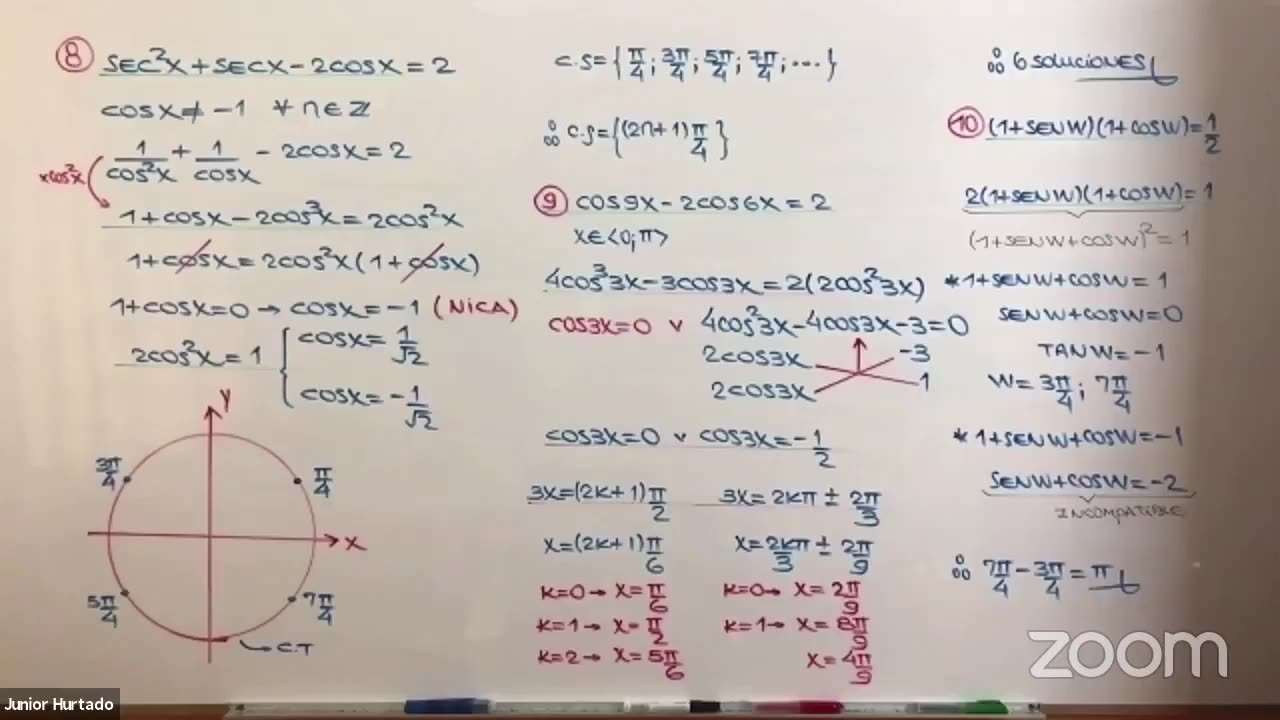 8 SEC²X + SECX - 2COSX = 2
COSX ≠ -1 ∀ n ∈ ℤ
1/COS²X + 1/COSX - 2COSX = 2
xCOS²X
1 + COSX - 2COS³X = 2COS²X
1 + COSX = 2COS²X(1 + COSX)
1 + COSX = 0 → COSX = -1 (NICA)
2COS²X = 1 { COSX = 1/√2
COSX = -1/√2
Y
3π/4
π/4
X
5π/4
7π/4
C.T
C.S = {π/4; 3π/4; 5π/4; 7π/4; ...}
∴ C.S = {(2n+1)π/4}
9 COS9X - 2COS6X = 2
X ∈ <0; π>
4COS³3X - 3COS3X = 2(2COS²3X)
COS3X = 0 ∨ 4COS²3X - 4COS3X - 3 = 0
2COS3X -3
2COS3X 1
COS3X = 0 ∨ COS3X = -1/2
3X = (2K+1)π/2 3X = 2Kπ ± 2π/3
X = (2K+1)π/6 X = 2Kπ/3 ± 2π/9
K=0 → X = π/6 K=0 → X = 2π/9
K=1 → X = π/2 K=1 → X = 8π/9
K=2 → X = 5π/6 X = 4π/9
∴ 6 SOLUCIONES
10 (1+SENW)(1+COSW) = 1/2
2(1+SENW)(1+COSW) = 1
(1+SENW+COSW)² = 1
* 1+SENW+COSW = 1
SENW+COSW = 0
TANW = -1
W = 3π/4; 7π/4
* 1+SENW+COSW = -1
SENW+COSW = -2
INCOMPATIBLE
∴ 7π/4 - 3π/4 = π
zoom
Junior Hurtado